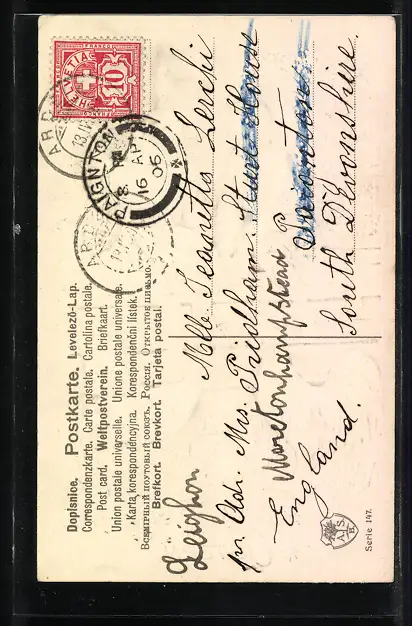 Dopisnice. Postkarte. Levelező-Lap.
Correspondenzkarte. Carte postale. Cartolina postale.
Post card. Weltpostverein. Briefkaart.
Union postale universelle. Unione postale universale.
Karta korespondencyjna. Korespondenční lístek.
Всемірный почтовый союзъ. Россія. Открытое письмо.
Brefkort. Brevkort. Tarjeta postal.
FRANCO
HELVETIA
10
FRANCO
PAIGNTON
8
16 AP
06
Mlle Jeanette Lerchi
pr. Adr. Mrs. Pridham.
Moretonhampstead
South Devonshire.
England.
A S
B.
Serie 147.